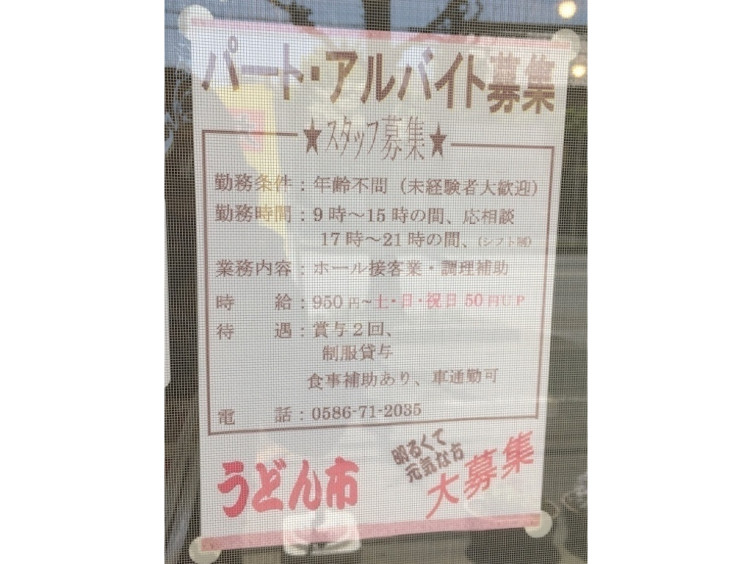 パート・アルバイト募集
★スタッフ募集★
勤務条件：年齢不問（未経験者大歓迎）
勤務時間：9時～15時の間、応相談
17時～21時の間、（シフト制）
業務内容：ホール接客業・調理補助
時　給：950円～土・日・祝日50円UP
待　遇：賞与2回、
制服貸与
食事補助あり、車通勤可
電　話：0586-71-2035
うどん市
明るくて
元気な方
大募集